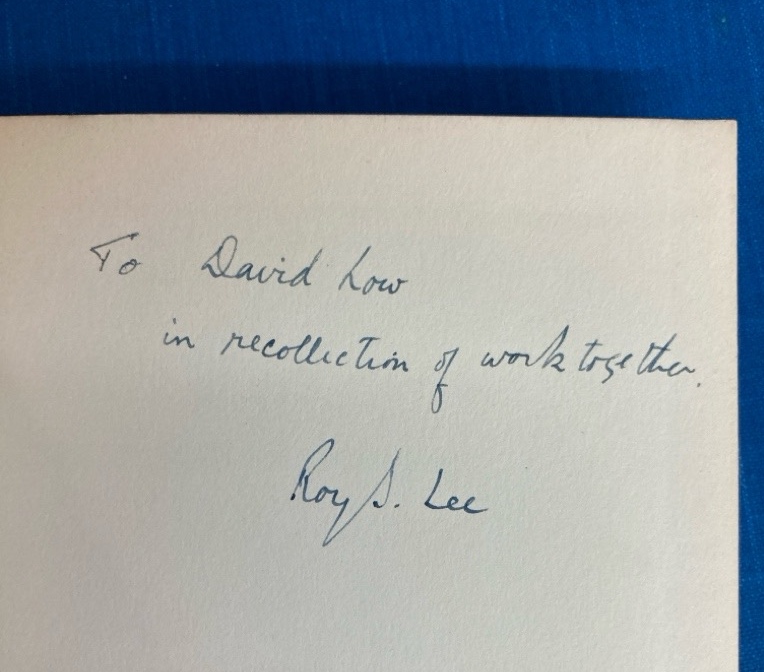 To David Low
in recollection of work together.
Roy S. Lee